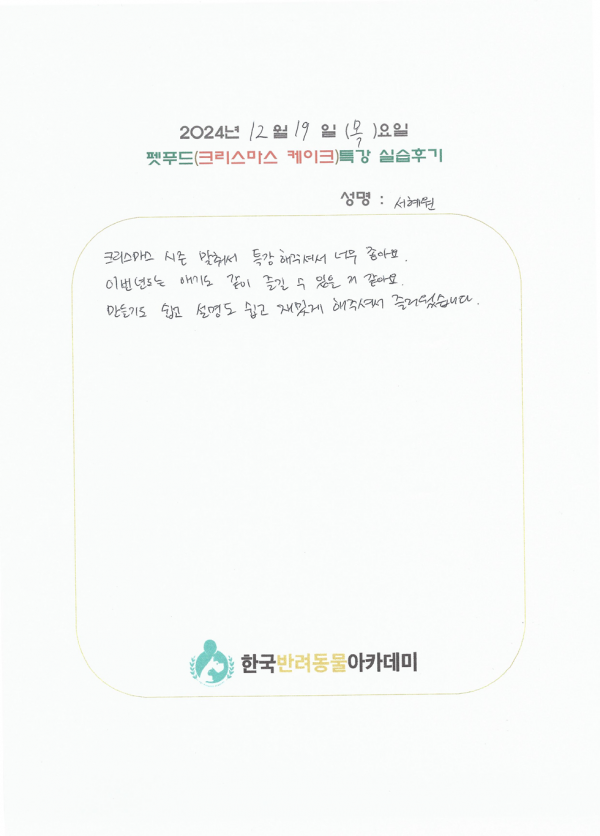 2024년 12월 19일 (목)요일
펫푸드(크리스마스 케이크)특강 실습후기
성명 : 서혜원
크리스마스 시즌 맞춰서 특강 해주셔서 너무 좋아요.
이번년도는 애기도 같이 즐길 수 있을 거 같아요.
만들기도 쉽고 설명도 쉽고 재밌게 해주셔서 즐거웠습니다.
한국반려동물아카데미